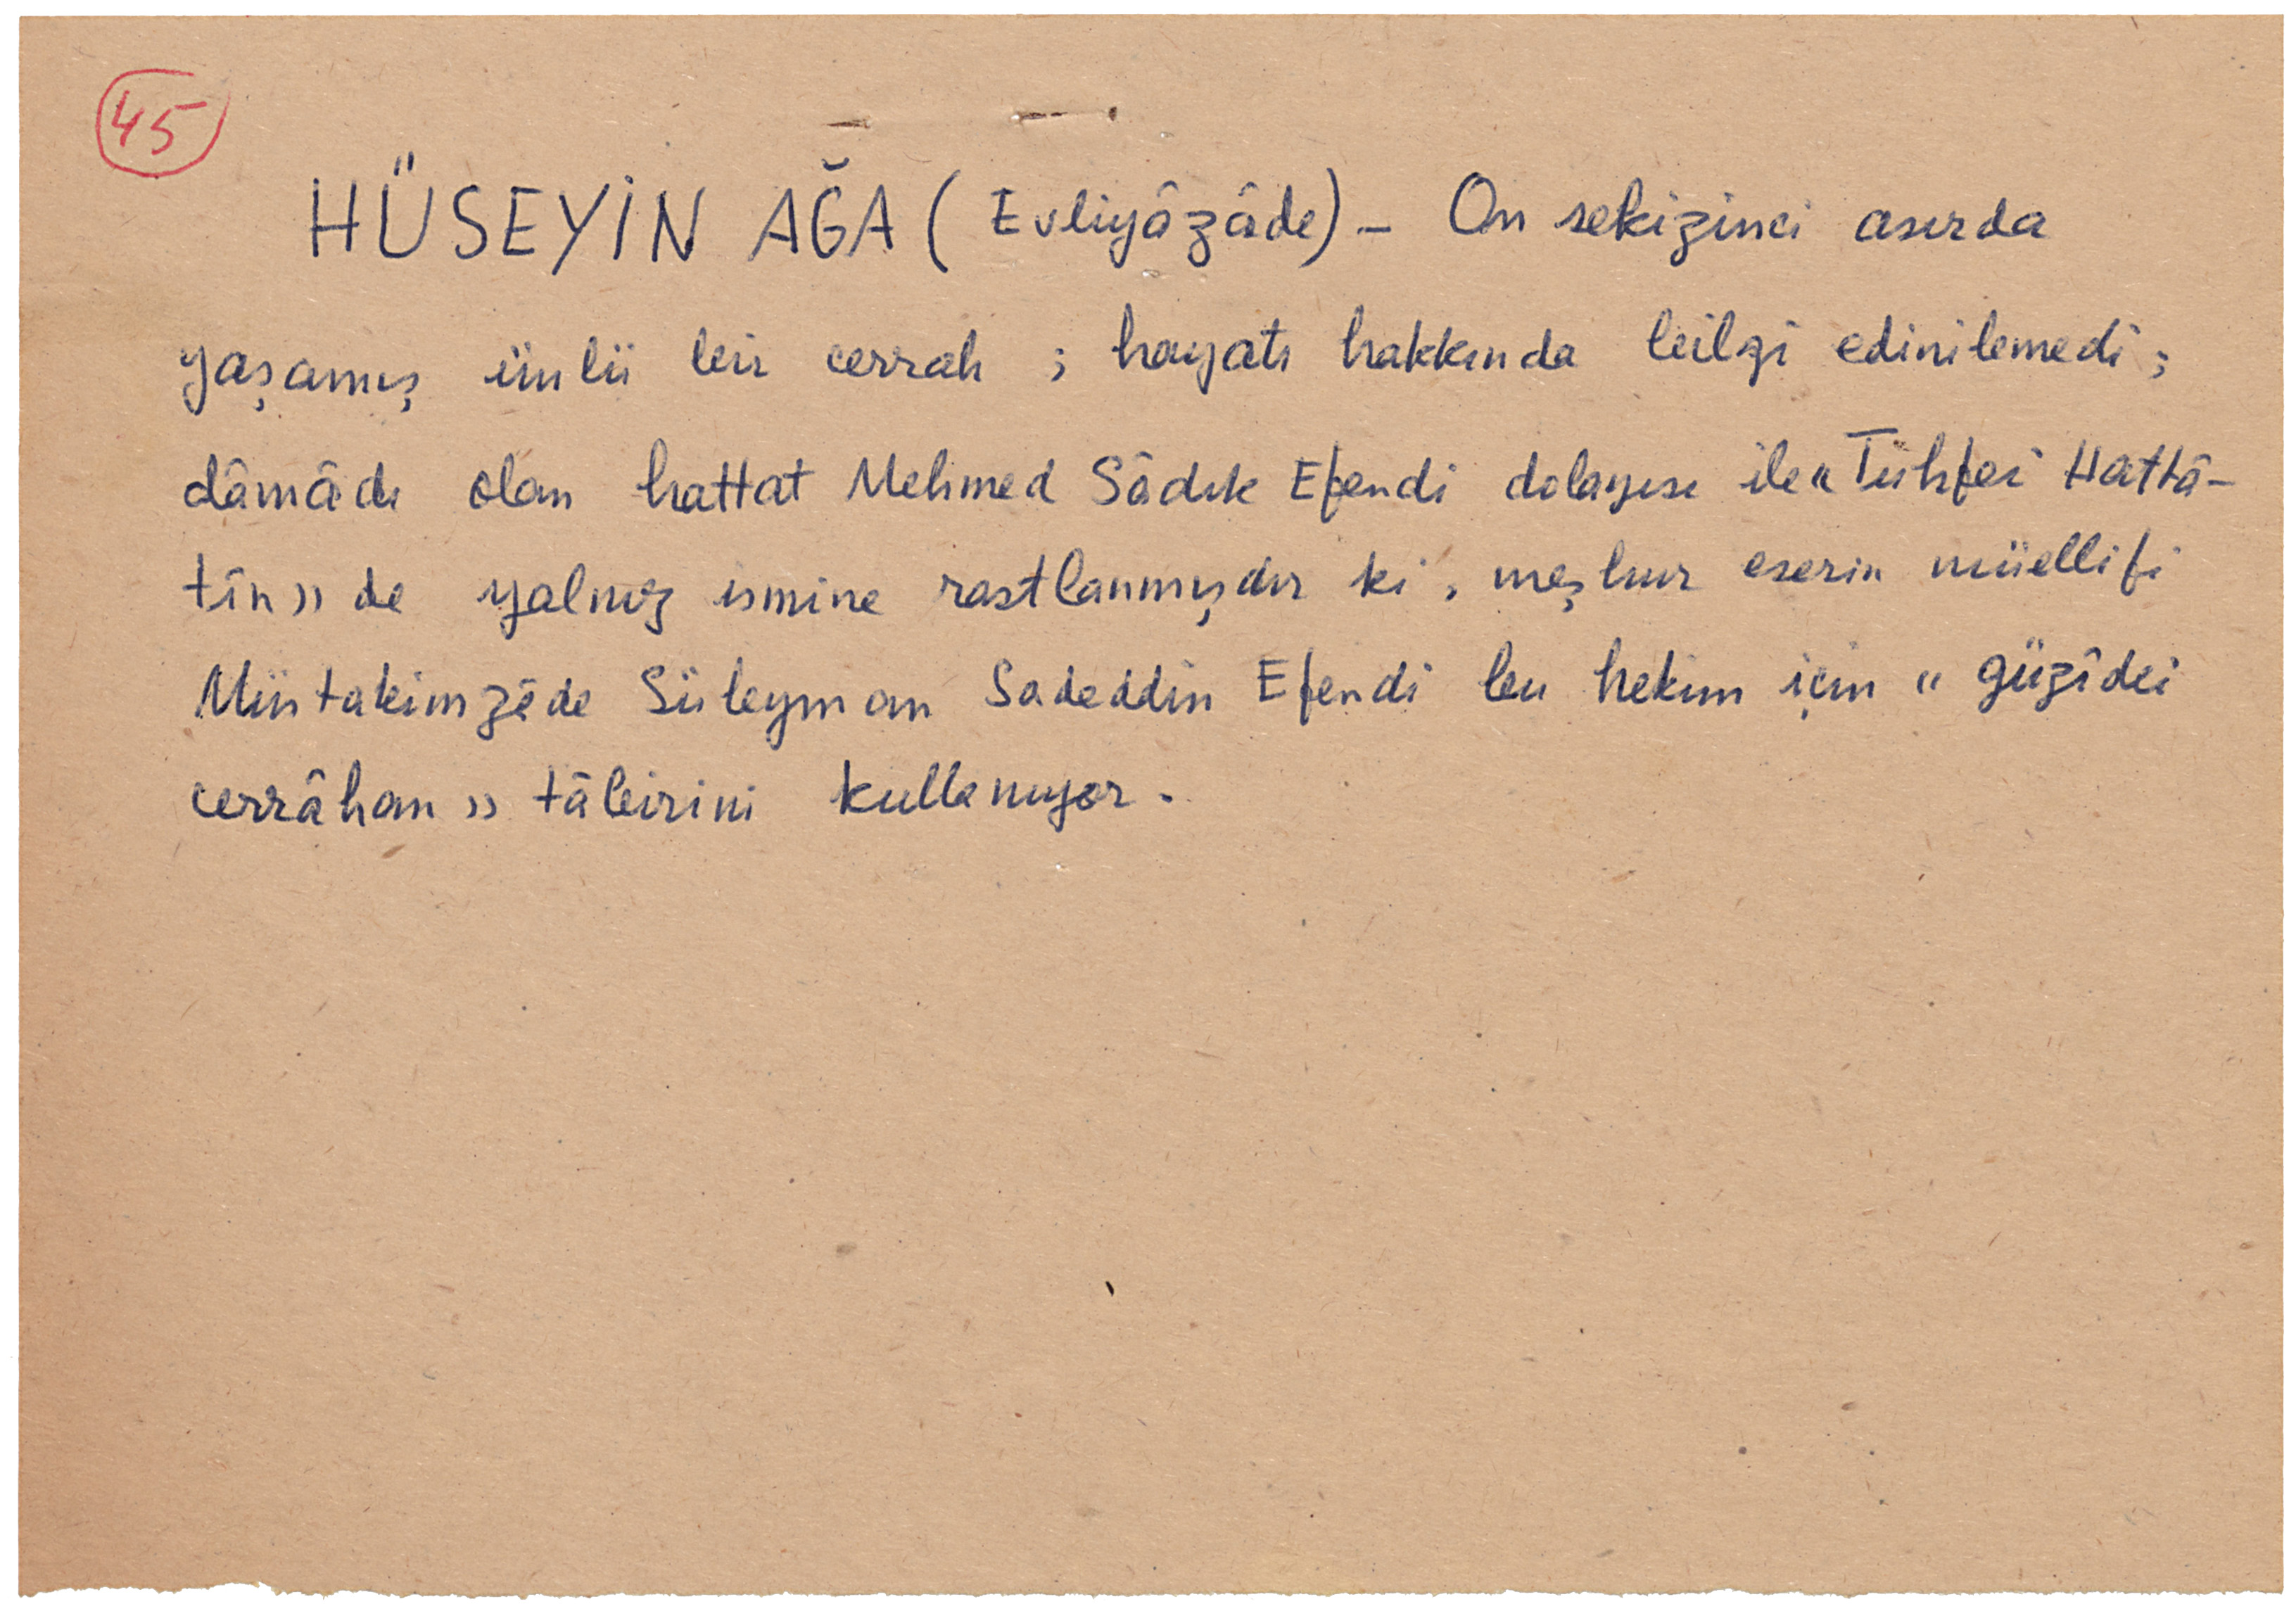 45
HÜSEYİN AĞA (Evliyâzâde) – On sekizinci asırda
yaşamış ünlü bir cerrah ; hayatı hakkında bilgi edinilemedi ;
dâmâdı olan hattat Mehmed Sâdık Efendi dolayısı ile « Tuhfei Hattâ-
tîn » de yalnız ismine rastlanmışdır ki, meşhur eserin müellifi
Müstakimzâde Süleyman Sadeddin Efendi bu hekim için « güzîdei
cerrâhan » tâbirini kullanıyor.